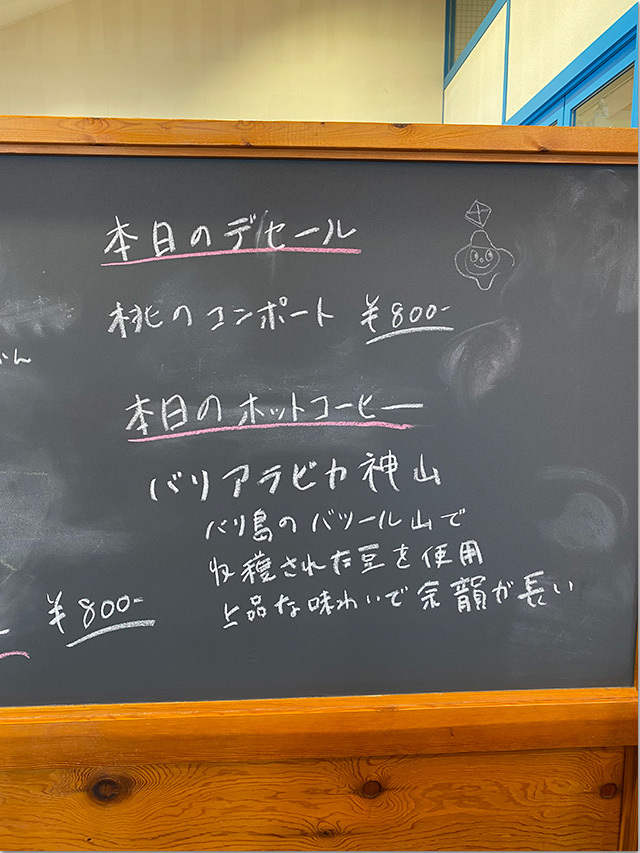 本日のデセール
桃のコンポート ¥800-
本日のホットコーヒー
バリアラビカ神山
バリ島のバツール山で
収穫された豆を使用
上品な味わいで余韻が長い
¥800-